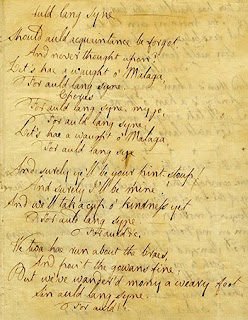 Auld lang syne
Should auld acquaintance be forgot
And never thought upon?
Let's hae a waught o' Malaga,
For auld lang syne.
Chorus
For auld lang syne, my jo,
For auld lang syne
Let's hae a waught o' Malaga
For auld lang syne
And surely ye'll be your pint stoup!
And surely I'll be mine
And we'll tak a cup o' kindness yet
For auld lang syne
For auld &c.
We twa hae run about the braes,
And pou't the gowans fine;
But we've wander'd mony a weary foot
Sin auld lang syne.
For auld